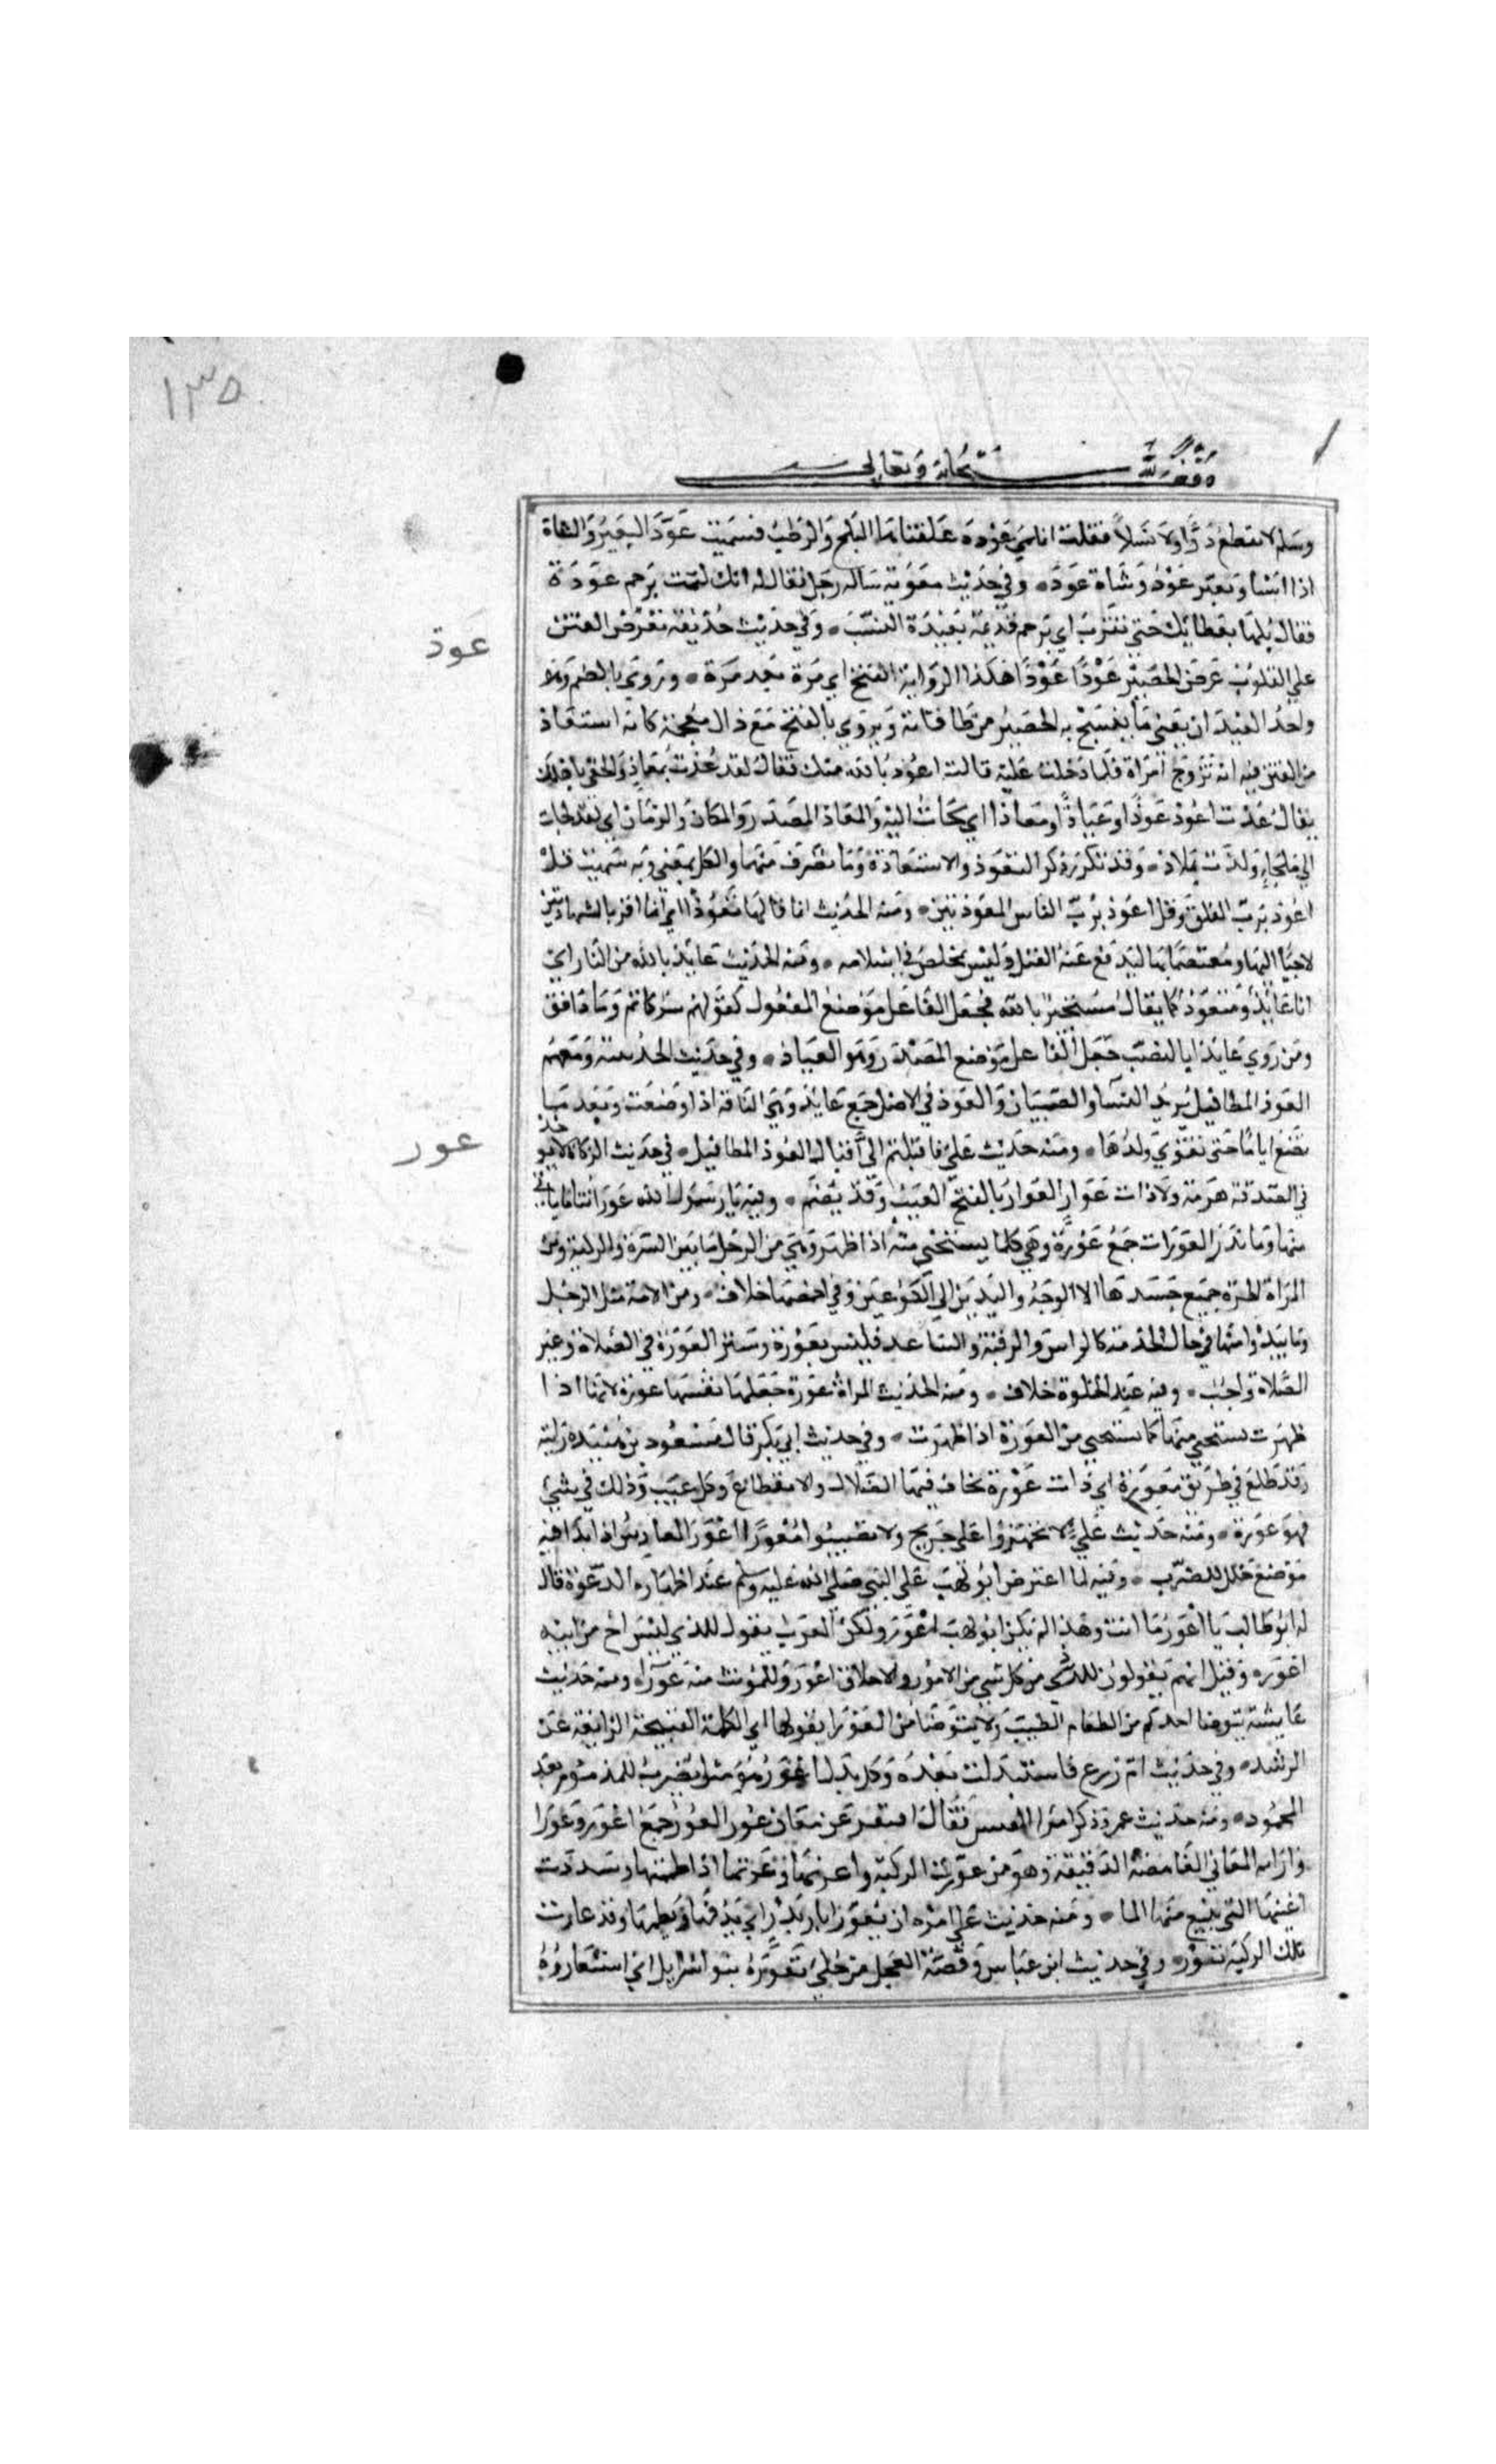 ١٣٥
وقف لله سبحانه وتعالى
وسلم لا تقطع دَرًّا ولا نَسلاً فقلت انما هي عَوْدة عَلفناها البَلح والرُطَب فسمنت عَوَّدَ البَعيرُ والشاة
اذا اسنا وبعير عَوْدٌ وشاة عَودَة وفي حديث معوية ساله رجل فقال له انك لتمت برحم عَودَة
فقال بُلها بعطائك حتى تقرب اي برحم قديمة بعيدة النسب وفي حديث حذيفة تعرض الفتن
على القلوب عَرض الحصير عَوْدًا عَوْدًا هكذا الرواية الفتح اي مرة بعد مرة ويروى بالضم وهو
واحد العيدان يعني ما ينسج به الحصير من طاقاته ويروي بالفتح مع ذال معجمة كانه استعاذ
عوذ
من الفتن فيه انه تزوج امراة فلما دخلت عليه قالت اعوذ بالله منك فقال لقد عُذت بمعاذ والحقي باهلك
يقال عذت اعوذ عَوذًا وعياذًا ومعاذا اي لجات اليه والمعاذ المصدر والمكان والزمان اي لقد لجات
الى ملجاء ولذت بملاذ وقد تكرر ذكر التعوذ والاستعاذة وما تصرف منهما والكل بمعنى وبه سميت قل
اعوذ برب الفلق وقل اعوذ برب الناس المعوذتين ومنه الحديث انما قالها تعوُّذًا اي انما اقر بالشهادتين
لاجيًا اليها ومعتصمًا بها ليدفع عنه القتل وليس بمخلص في اسلامه ومنه الحديث عايذ بالله من النار اي
انا عايذ ومتعوذ كما يقال مستجير بالله فجعل الفاعل موضع المفعول كقولهم سر كاتم وما دافق
ومن روي عايذا بالنصب جعل الفاعل موضع المصدر وهو العياذ وفي حديث الحديبية ومعهم
العوذ المطافيل يريد النسا والصبيان والعوذ في الاصل جمع عايذ وهي الناقة اذا وضعت وبعد ما
تضع اياما حتى تقوي ولدها ومنه حديث علي فاقبلتم الي اقبال العوذ المطافيل في حديث الزكاة لا يوخذ
عور
في الصدقة هرمة ولا ذات عَوار العوار بالفتح العيب وقد يضم وفيه يا رسول الله عوراتنا ما ناتي
منها وما نذر العورات جمع عورة وهي كلما يستحى منه اذا ظهر وهي من الرجل ما بين السرة والركبة ومن
المراة الحرة جميع جسدها الا الوجه واليدين الى الكوعين وفي اخمصها خلاف ومن الامة مثل الرجل
وما يبدو منها في حال الخدمة كالراس والرقبة والساعد فليس بعورة وستر العورة في الصلاة وغير
الصلاة واجب وفيه عند الخلوة خلاف ومنه الحديث المراة عورة جعلها نفسها عورة لانها اذا
ظهرت يستحيي منها كما يستحيي من العورة اذا ظهرت وفي حديث ابي بكر قال مسعود بن هنيدة رايته
وقد طلع في طريق معورة اي ذات عورة يخاف فيها الضلال والانقطاع وكل عيب وذلك في شيء
فهو عورة ومنه حديث علي لا تجهزوا على جريح ولا تصيبوا مُعْوِرًا اعْوَر الفارس اذا بدا فيه
موضع خلل للضرب وفيه لما اعترض ابو لهب على النبي صلى الله عليه وسلم عند اظهاره الدعوة قال
له ابو طالب يا اعور ما انت وهذا لم يكن ابو لهب اعْوَر ولكن العرب تقول للذي ليس له اخ من ابيه
اعور وقيل انهم يقولون للردي من كل شي من الامور والاخلاق اعور وللمونث منه عورا ومنه حديث
عايشة يتوضا احدكم من الطعام الطيب ولا يتوضا من العَوْرا يقولها اي الكلمة القبيحة الزايغة عن
الرشد وفي حديث ام زرع فاستبدلت بعده وكل بدل اعور هو مثل يضرب للمذموم بعد
المحمود ومنه حديث عمر وذكر امرا القيس فقال افتقر عن معان عُور العُور جمع اعور وعورا
واراد به المعاني الغامضة الدقيقة وهو من عوّرت الركية واعرتها وعرتها اذا طممتها وسددت
اعينها التي ينبع منها الما ومنه حديث علي امره ان يعوّر ابار بدر اي يدفنها ويطمها وقد عارت
تلك الركية تعور وفي حديث ابن عباس وقصة العجل من حلي تعوّره بنو اسرايل اي استعاروه